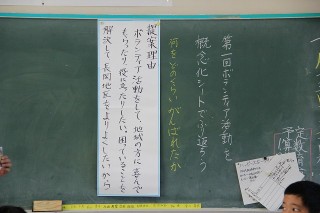 第一回ボランティア活動を
概念化シートでふり返ろう
何をどのくらいがんばれたか
提案理由
ボランティア活動をして、地域の方に喜んで
もらったり、役に立ったりしたい。困っていることを
解決して長岡地区をよりよくしたいから